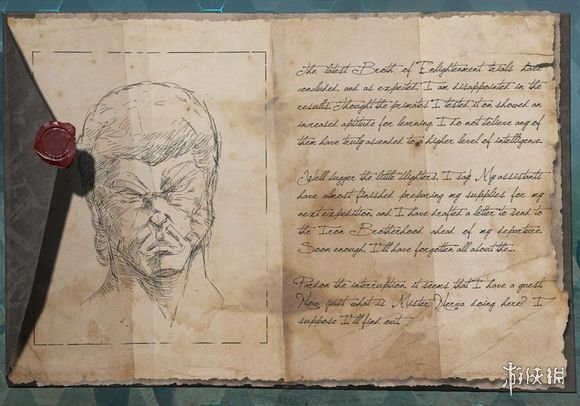 The latest Broth of Enlightenment trials have
concluded, and as expected, I am disappointed in the
results. Thought the primates I tested it on showed an
increased aptitude for learning, I do not believe any of
them have truly ascended to a higher level of intelligence.
Well sugger the little blighters, I say. My assistants
have almost finished preparing my supplies for my
next expedition, and I have drafted a letter to send to
the Iron Brotherhood ahead of my departure.
Soon enough, I'll have forgotten all about the...
Pardon the interruption, it seems that I have a guest.
Now, just what is Mister Nerva doing here? I
suppose I'll find out.
游侠网